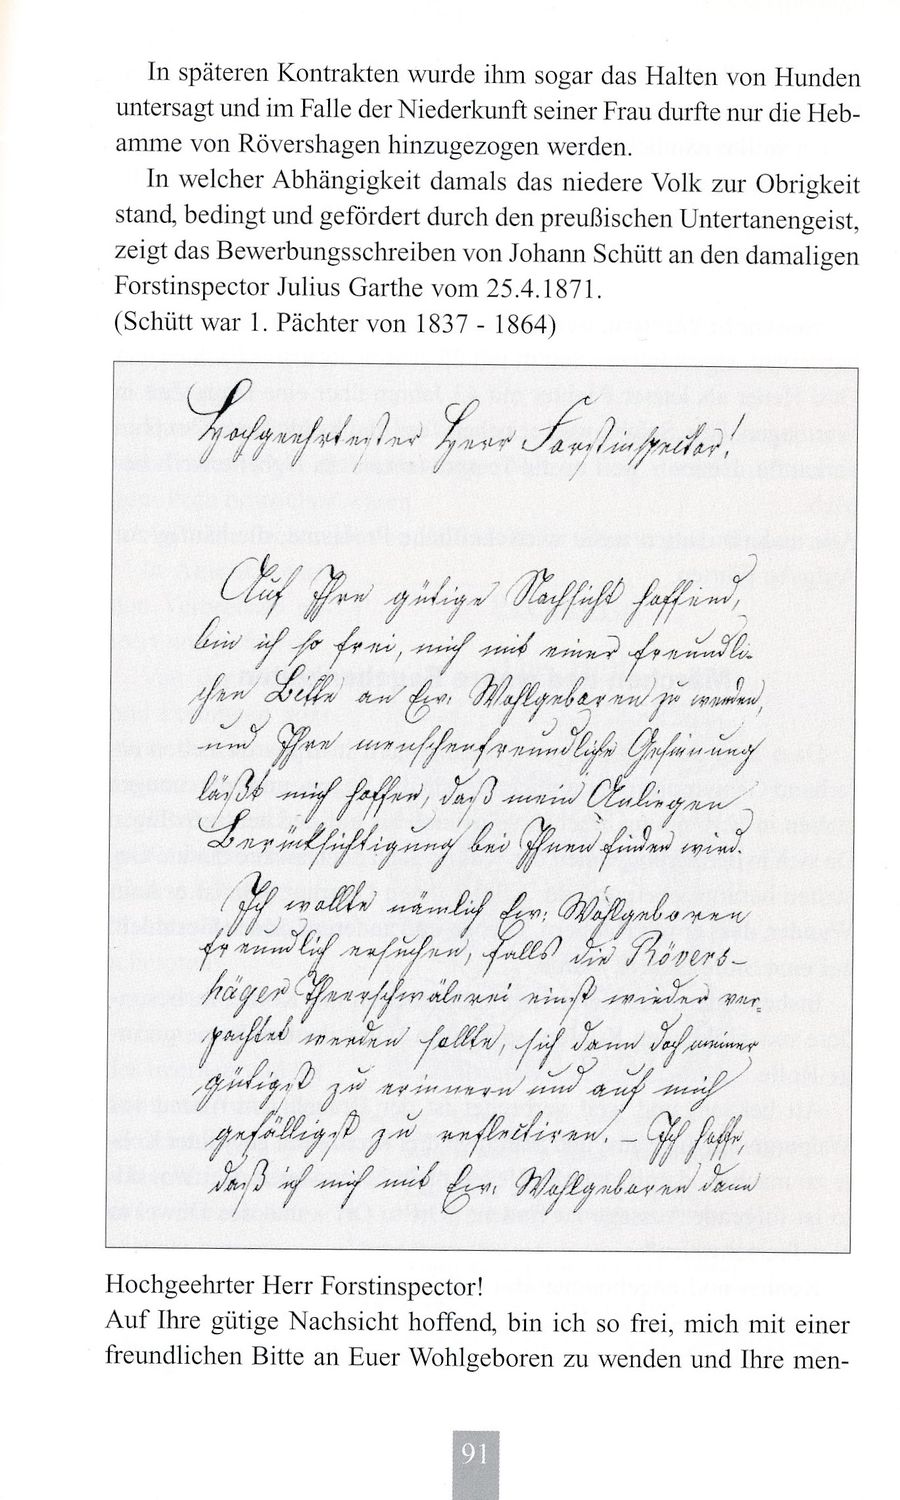 In späteren Kontrakten wurde ihm sogar das Halten von Hunden
untersagt und im Falle der Niederkunft seiner Frau durfte nur die Heb-
amme von Rövershagen hinzugezogen werden.
In welcher Abhängigkeit damals das niedere Volk zur Obrigkeit
stand, bedingt und gefördert durch den preußischen Untertanengeist,
zeigt das Bewerbungsschreiben von Johann Schütt an den damaligen
Forstinspector Julius Garthe vom 25.4.1871.
(Schütt war 1. Pächter von 1837 - 1864)
Hochgeehrtester Herr Forstinspector!
Auf Ihre gütige Nachsicht hoffend,
bin ich so frei, mich mit einer freundli-
chen Bitte an Ew. Wohlgeboren zu wenden,
und Ihre menschenfreundliche Gesinnung
läßt mich hoffen, daß mein Anliegen
Berücksichtigung bei Ihnen finden wird.
Ich wollte nämlich Ew. Wohlgeboren
freundlich ersuchen, falls die Rövers-
häger Theerschwälerei einst wieder ver-
pachtet werden sollte, sich dann doch meiner
gütigst zu erinnern und auf mich
gefälligst zu reflectiren. – Ich hoffe,
daß ich mich mit Ew. Wohlgeboren dann
Hochgeehrter Herr Forstinspector!
Auf Ihre gütige Nachsicht hoffend, bin ich so frei, mich mit einer
freundlichen Bitte an Euer Wohlgeboren zu wenden und Ihre men-
91